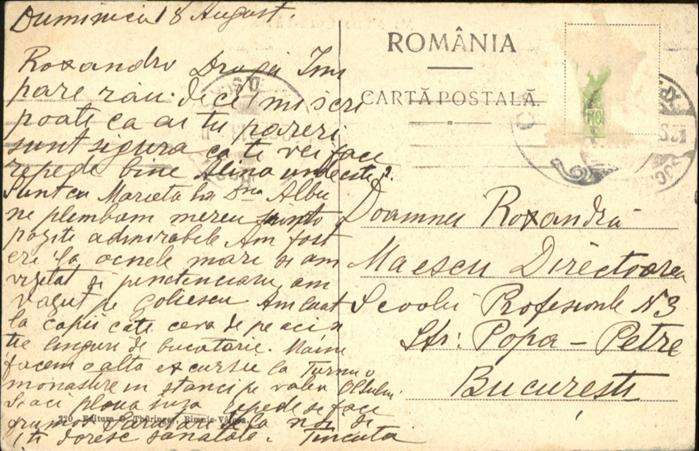 Duminică 18 August.
Roxandro Dragă Îmi
pare rău de cele ce mi scri
poate că ai tu păreri
sunt sigură că te vei face
repede bine Alina unde este?
Sunt cu Marieta la Dna Albu
ne plimbăm mereu sunt
poziții admirabile Am fost
eri la ocnele mari și am
vizitat și penitenciaru am
văzut pe Golescu Am luat
la copii câte ceva de pe aci și
linguri de bucătărie. Maine
facem o altă excursie la Turnu o
monastire in stanci pe valea Oltului.
Și aci plouă însă repede se face
frumos
iți doresc sanatate. Tincuta
270 Editura G. Thüringer, Rîmnic-Vâlcea.
ROMÂNIA
CARTĂ POSTALĂ
Doamnei Roxandra
Maescu Directoarea
Scoalei Profesionale N 3
Str: Popa - Petre
București